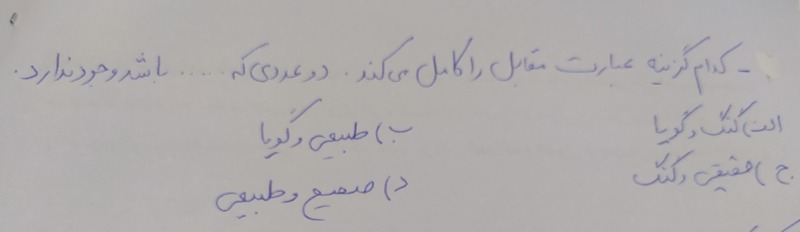 - کدام گزینه عبارت مقابل را کامل می‌کند. دو عددی که ..... باشد وجود ندارد.
الف) گنگ و گویا ب) طبیعی و گویا
ج) حقیقی و گنگ د) صحیح و طبیعی